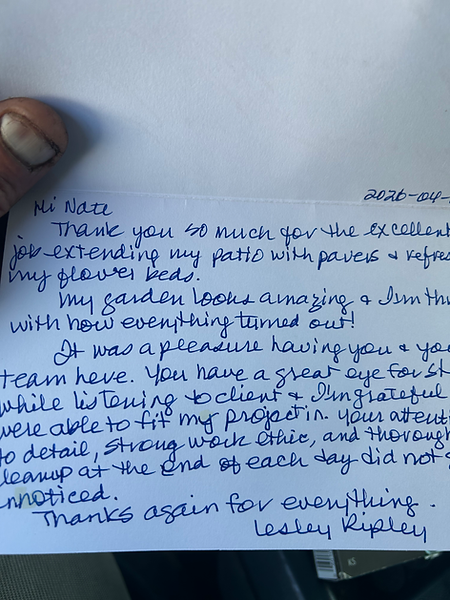 2026-04-
Hi Nate
Thank you so much for the excellent
job extending my patio with pavers & refres
my flower beds.
My garden looks amazing & I'm th
with how everything turned out!
It was a pleasure having you & you
team here. You have a great eye for st
while listening to client & I'm grateful
were able to fit my project in. Your attenti
to detail, strong work ethic, and thorough
cleanup at the end of each day did not
nnoticed.
Thanks again for everything.
Lesley Ripley